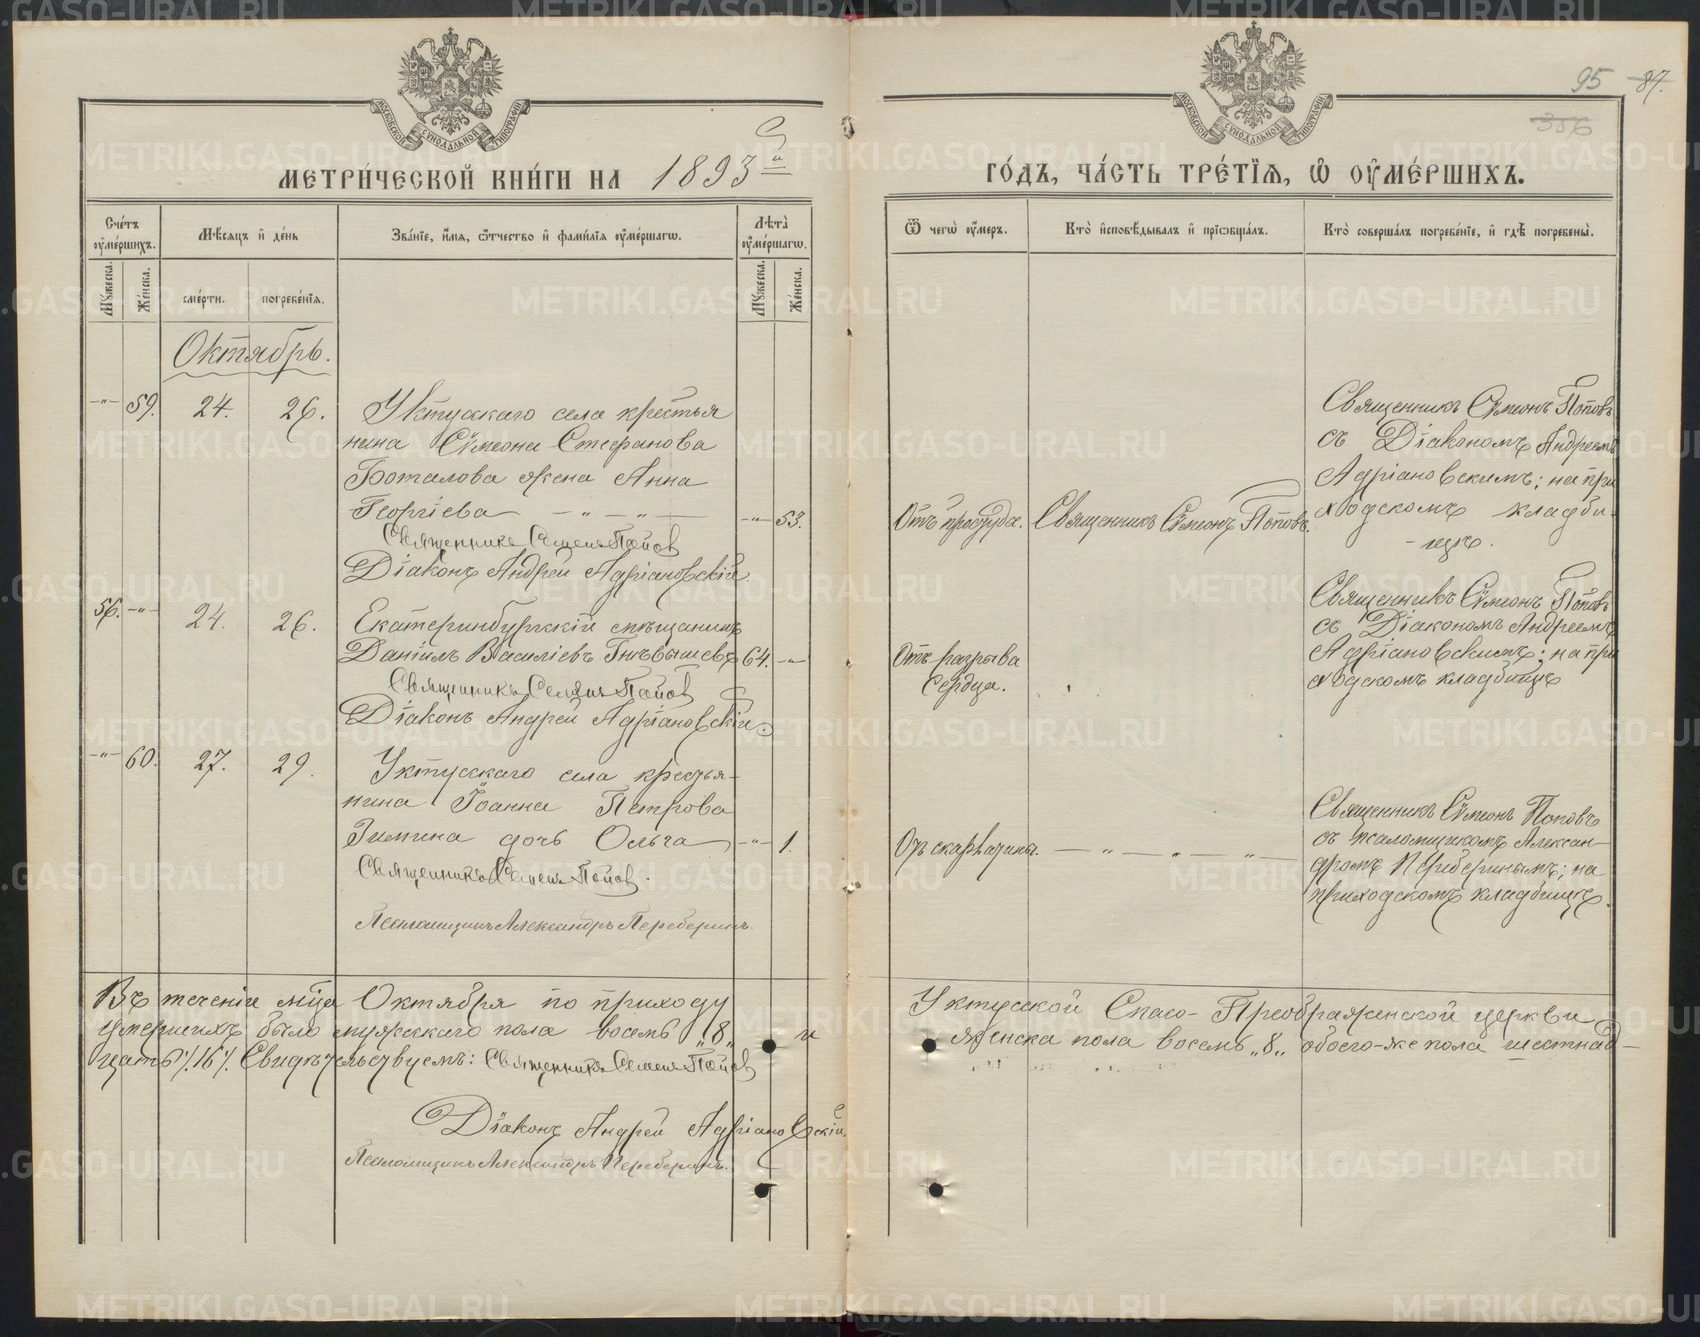 95 87.
356
МЕТРИ́ЧЕСКОЙ КНИ́ГИ НА 1893й ГО́ДЪ, ЧА́СТЬ ТРЕ́ТІѦ, Ѡ ОУМЕ́РШИХЪ.
Сче́тъ оуме́ршихъ.
Мꙋжеска.
Же́нска.
Мѣ́сяцъ и де́нь
сме́рти.
погребе́нїѧ.
Зва́нїе, и́мѧ, ѻ́тчество и фами́лїѧ оуме́ршагѡ.
Лѣта̀ оуме́ршагѡ.
Мꙋжеска.
Же́нска.
Ѿ чегѡ̀ оу́меръ.
Кто̀ исповѣ́дывалъ и прїѡбща́лъ.
Кто̀ соверша́лъ погребе́нїе, и гдѣ̀ погребены̀.
Октябрь.
-"- 59. 24. 26.
Уктусскаго села крестья
нина Сѵмеона Стефанова
Боталова жена Анна
Георгіева — " — " — -"- 53.
Священникъ Семенъ Поповъ
Діаконъ Андрей Адріановскій
Отъ простуды.
Священникъ Сѵмеонъ Поповъ.
Священникъ Сѵмеонъ Поповъ
съ Діакономъ Андреемъ
Адріановскимъ; на при
ходскомъ кладби-
щѣ.
56. -"- 24. 26.
Екатеринбургскій мѣщанинъ
Даніилъ Василіевъ 64. -"-
Священникъ Семенъ Поповъ
Діаконъ Андрей Адріановскій
Отъ разрыва
сердца.
Священникъ Сѵмеонъ Поповъ
съ Діакономъ Андреемъ
Адріановскимъ; на при
ходскомъ кладбищѣ
-"- 60. 27. 29.
Уктусскаго села крестья-
нина Іоанна Петрова
Зимина дочь Ольга -"- 1.
Священникъ Семенъ Поповъ.
Псаломщикъ Александръ Переберинъ.
Отъ скарлатины. — " — " — " —
Священникъ Сѵмеонъ Поповъ
съ псаломщикомъ Алексан-
дромъ Переберинымъ; на
приходскомъ кладбищѣ.
Въ теченіе мца Октября по приходу Уктусской Спасо-Преображенской церкви
умершихъ было мужескаго пола восемь „8„ и женска пола восемь „8„ обоего-же пола шестнад-
цать /.16/. Свидѣтельствуемъ: Священникъ Семенъ Поповъ
Діаконъ Андрей Адріановскій
Псаломщикъ Александръ Переберинъ.
METRIKI.GASO-URAL.RU